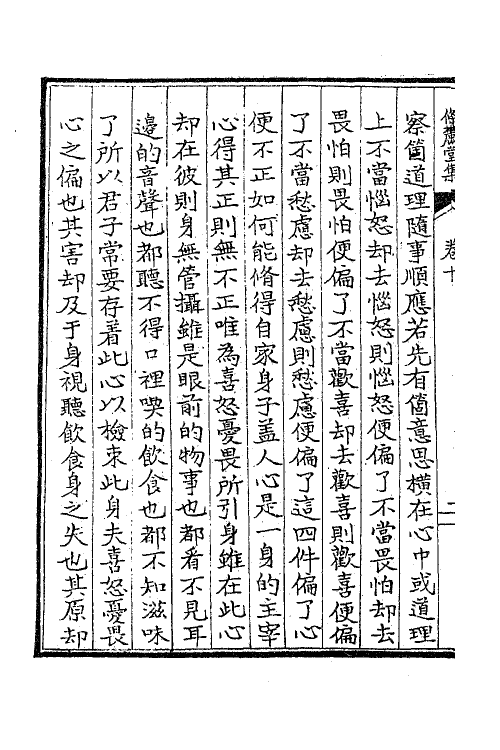 脩麓堂集 卷十 二
察箇道理隨事順應若先有箇意思橫在心中或道理
上不當惱怒却去惱怒則惱怒便偏了不當畏怕却去
畏怕則畏怕便偏了不當歡喜却去歡喜則歡喜便偏
了不當愁慮却去愁慮則愁慮便偏了這四件偏了心
便不正如何能脩得自家身子盖人心是一身的主宰
心得其正則無不正唯為喜怒憂畏所引身雖在此心
却在彼則身無管攝雖是眼前的物事也都看不見耳
邊的音聲也都聽不得口裡喫的飲食也都不知滋味
了所以君子常要存着此心以檢束此身夫喜怒憂畏
心之偏也其害却及于身視聽飲食身之失也其原却